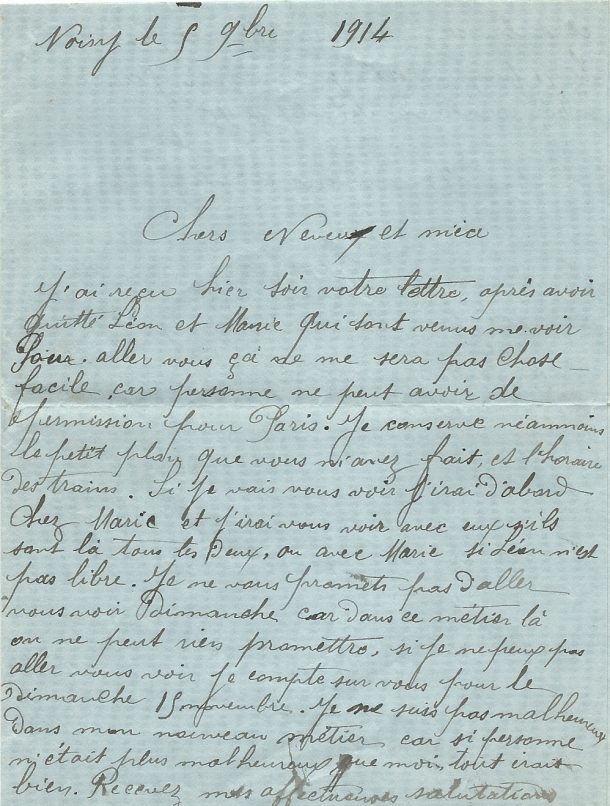 Noisy le 5 9bre 1914
Chers Neveux et nièce
J'ai reçu hier soir votre lettre, après avoir
quitté Léon et Marie qui sont venus me voir
Pour aller vous çà ne me sera pas chose
facile, car personne ne peut avoir de
permission pour Paris. Je conserve néammoins
le petit plan que vous m'avez fait, et l'horaire
des trains. Si je vais vous voir j'irai d'abord
chez Marie et j'irai vous voir avec eux s'ils
sont là tous les deux, ou avec Marie si Léon n'est
pas libre. Je ne vous promets pas d'aller
vous voir Dimanche car dans ce métier là
on ne peut rien promettre, si je ne peux pas
aller vous voir je compte sur vous pour le
Dimanche 15 novembre. Je ne suis pas malheureux
dans mon nouveau métier car si personne
n'était plus malheureux que moi, tout irait
bien. Recevez mes affectueuses salutations